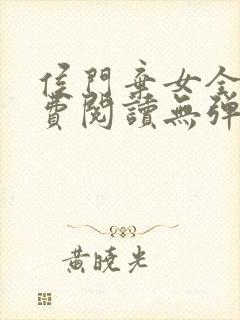 侯門棄女全
費閱讀無彈
黃曉光